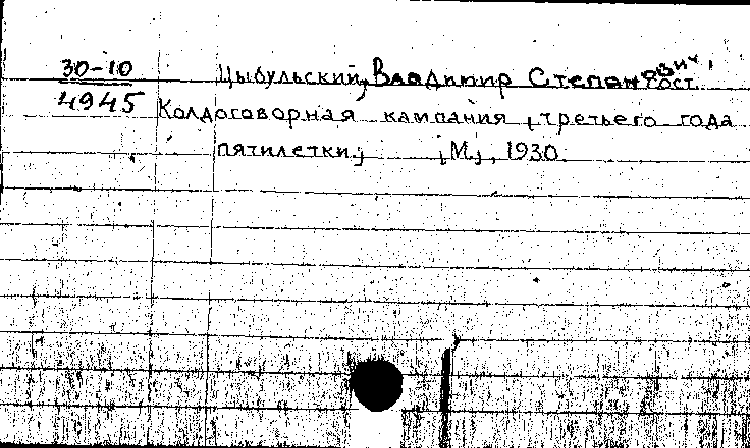 30-10
4945
Цыбульский, Владимир Степанович, сост.
Колдоговорная кампания третьего года
пятилетки; М., 1930.